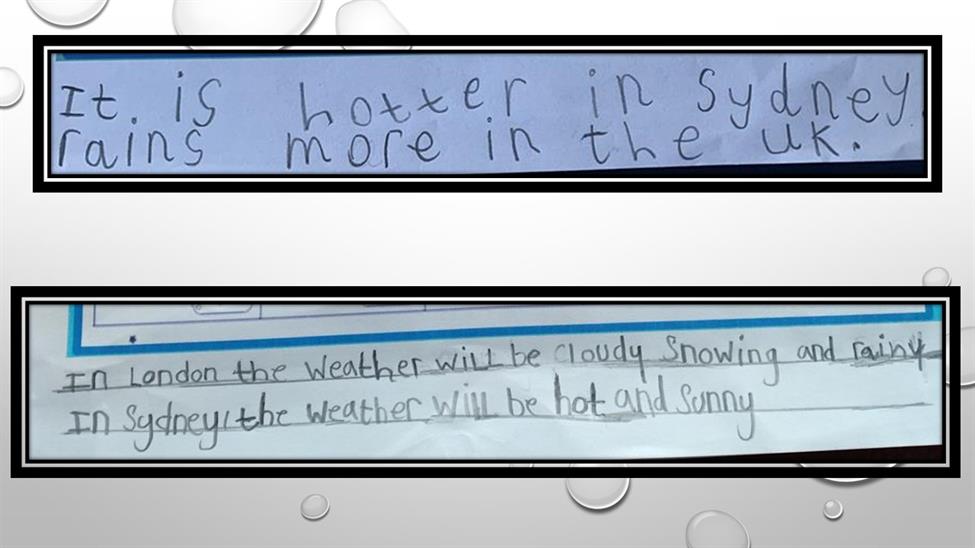 It. is hotter in Sydney.
rains more in the UK.
In London the weather will be cloudy Snowing and rainy
In Sydney, the weather will be hot and Sunny